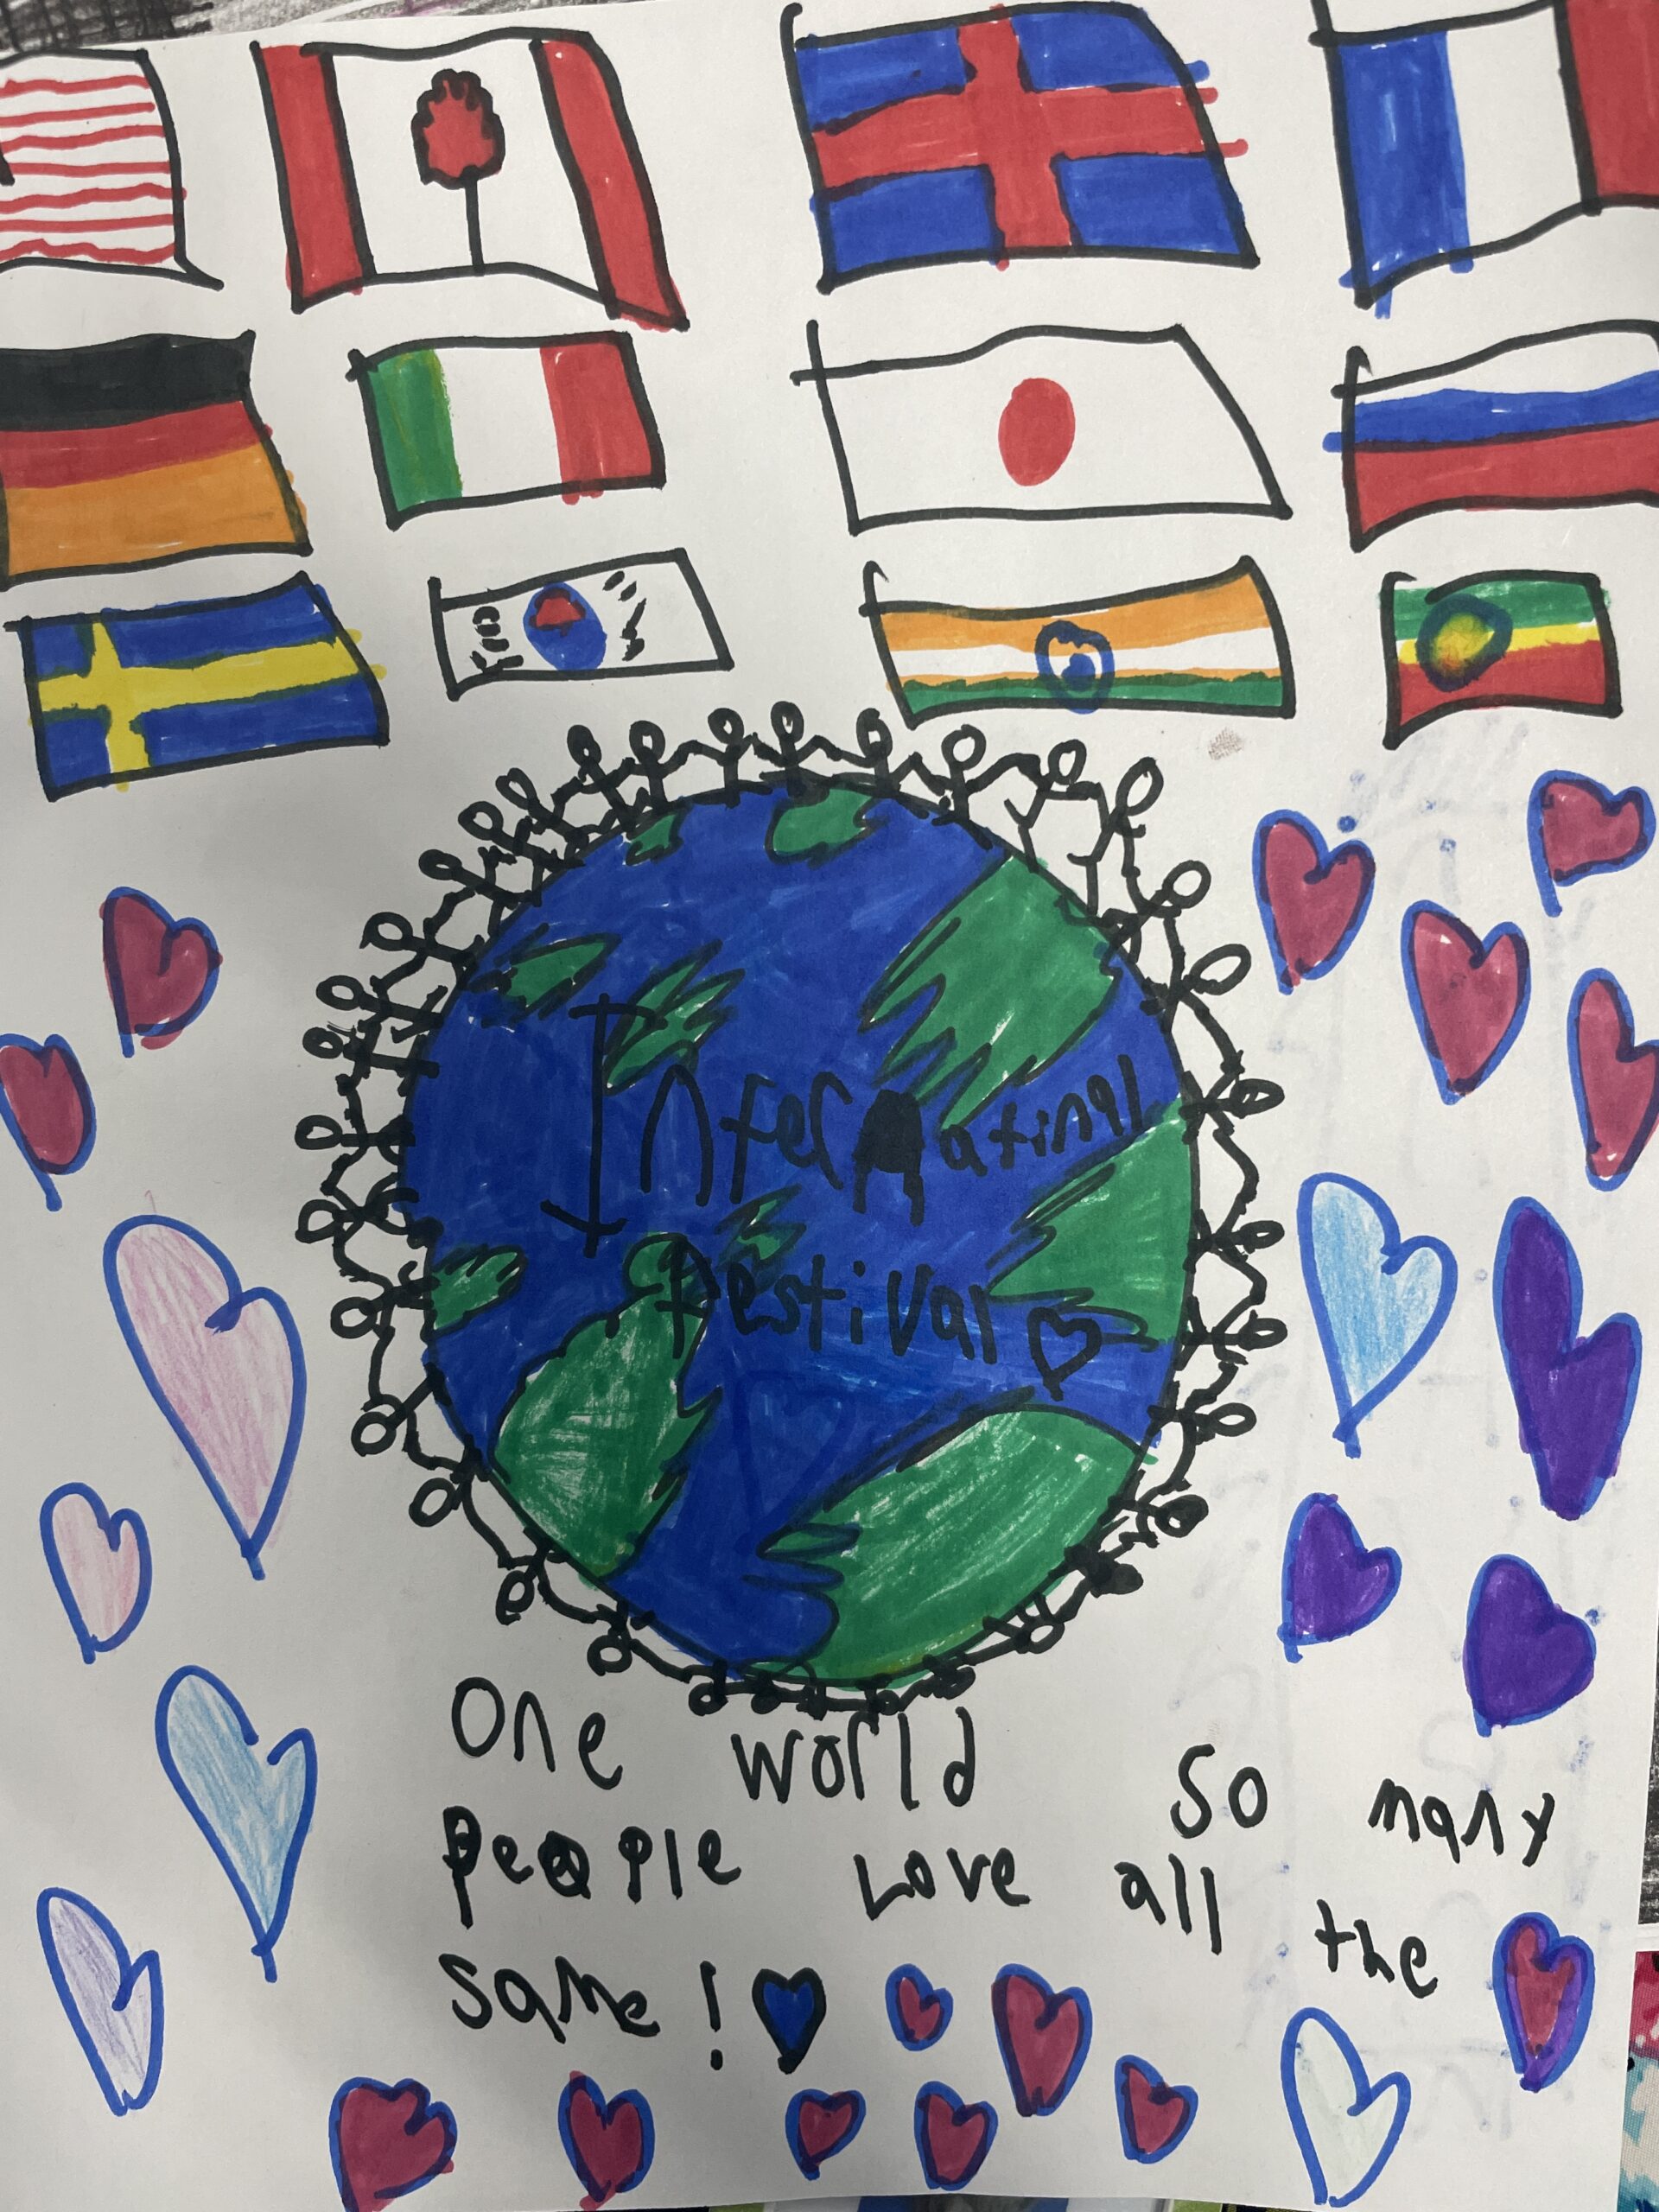 InterNatinal
festival
One world so many
people Love all the
same!